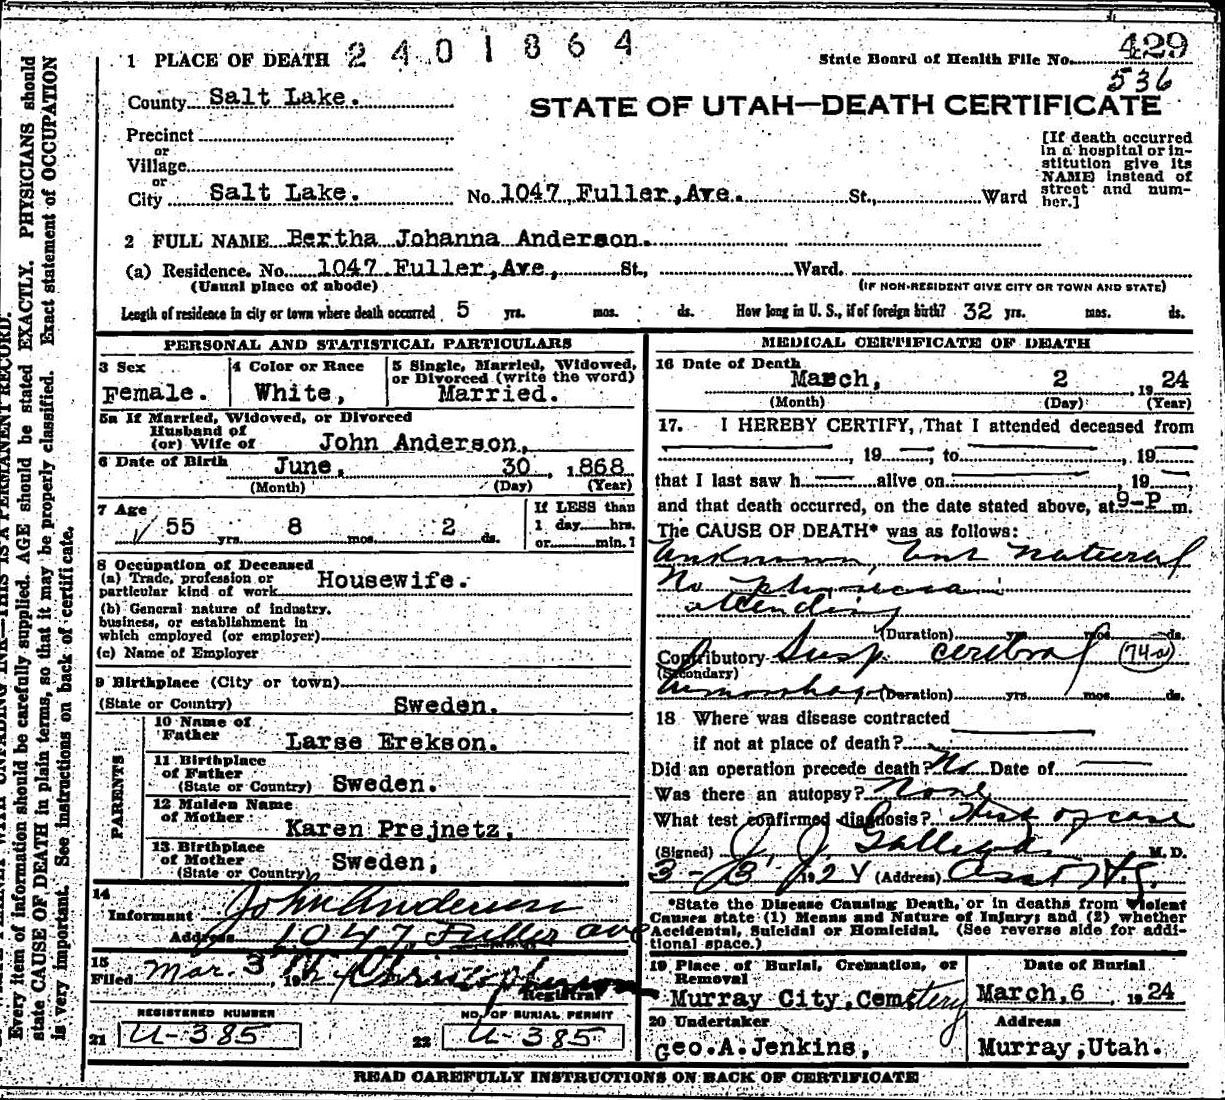 1 PLACE OF DEATH 2401864
State Board of Health File No. 429
536
County Salt Lake.
STATE OF UTAH—DEATH CERTIFICATE
Precinct
or
Village
or
City Salt Lake. No. 1047 Fuller, Ave. St., Ward
[If death occurred
in a hospital or in-
stitution give its
NAME instead of
street and num-
ber.]
2 FULL NAME Bertha Johanna Anderson.
(a) Residence. No. 1047 Fuller, Ave, St., Ward.
(Usual place of abode) (IF NON-RESIDENT GIVE CITY OR TOWN AND STATE)
Length of residence in city or town where death occurred 5 yrs. mos. ds. How long in U. S., if of foreign birth? 32 yrs. mos. ds.
PERSONAL AND STATISTICAL PARTICULARS
3 Sex Female.
4 Color or Race White,
5 Single, Married, Widowed,
or Divorced (write the word)
Married.
5a If Married, Widowed, or Divorced
Husband of
(or) Wife of John Anderson,
6 Date of Birth June, 30, 1868
(Month) (Day) (Year)
7 Age 55 yrs. 8 mos. 2 ds.
If LESS than
1 day hrs.
or min.?
8 Occupation of Deceased
(a) Trade, profession or
particular kind of work Housewife.
(b) General nature of industry,
business, or establishment in
which employed (or employer)
(c) Name of Employer
9 Birthplace (City or town)
(State or Country) Sweden.
PARENTS
10 Name of
Father Larse Erekson.
11 Birthplace
of Father
(State or Country) Sweden.
12 Maiden Name
of Mother Karen Prejnetz,
13 Birthplace
of Mother
(State or Country) Sweden,
14
Informant John Anderson
Address 1047 Fuller ave
15
Filed Mar. 3, 19
Registrar
REGISTERED NUMBER
21 U-385
NO. OF BURIAL PERMIT
22 U-385
MEDICAL CERTIFICATE OF DEATH
16 Date of Death
March, 2, 1924
(Month) (Day) (Year)
17. I HEREBY CERTIFY, That I attended deceased from
, 19 , to , 19
that I last saw h alive on , 19 ,
and that death occurred, on the date stated above, at 9-P m.
The CAUSE OF DEATH* was as follows:
Unknown, but natural
No physician
attending
(Duration) yrs. mos. ds.
Contributory Susp. cerebral 74-a
(Secondary)
hemorrhage (Duration) yrs. mos. ds.
18 Where was disease contracted
if not at place of death?
Did an operation precede death? No Date of
Was there an autopsy? None
What test confirmed diagnosis? Hist of case
(Signed) J. J. M. D.
3-3 1924 (Address) Asst H.
*State the Disease Causing Death, or in deaths from Violent
Causes state (1) Means and Nature of Injury; and (2) whether
Accidental, Suicidal or Homicidal. (See reverse side for addi-
tional space.)
19 Place of Burial, Cremation, or
Removal
Murray City, Cemetery
Date of Burial
March, 6, 1924
20 Undertaker
Geo. A. Jenkins,
Address
Murray, Utah.
READ CAREFULLY INSTRUCTIONS ON BACK OF CERTIFICATE
Every item of information should be carefully supplied. AGE should be stated EXACTLY. PHYSICIANS should
state CAUSE OF DEATH in plain terms, so that it may be properly classified. Exact statement of OCCUPATION
is very important. See instructions on back of certificate.